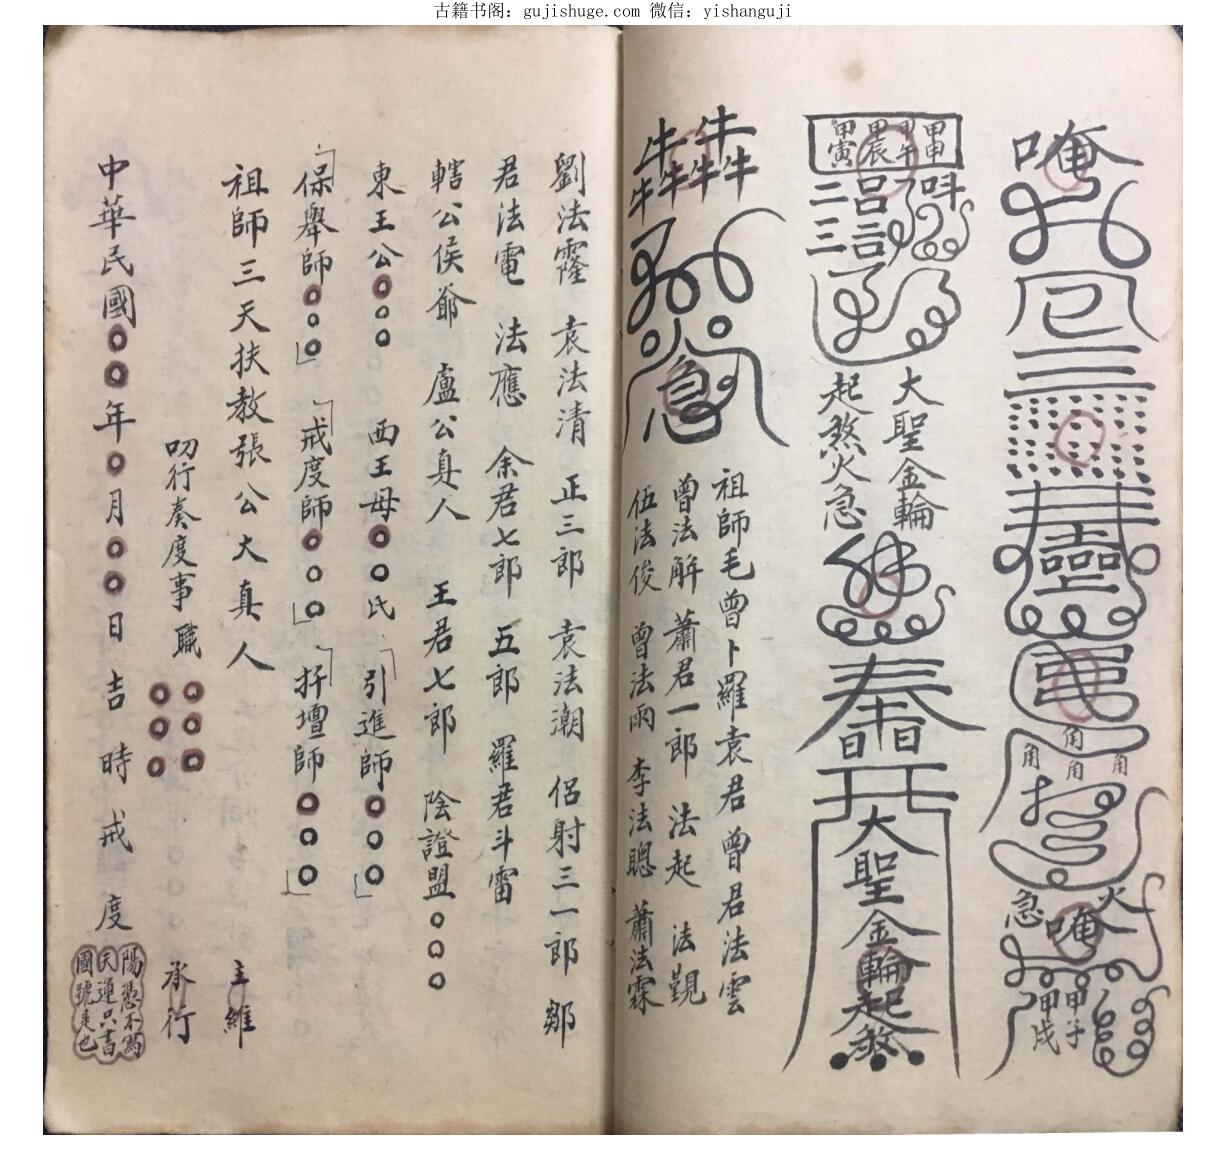 古籍书阁：gujishuge.com 微信：yishanguji
唵
三
角 角 角 角
火急
唵
甲子 甲戌
甲申 甲午 甲辰 甲寅
大聖金輪
起煞火急
大聖金輪起煞
牛牛牛 牛牛牛
急
祖師毛曾卜羅袁君曾君法雲
曾法解 蕭君一郎 法起 法觀
伍法俊 曾法雨 李法聰 蕭法霖
劉法霳 袁法清 正三郎 袁法潮 侶射三一郎 鄒
君法電 法應 余君七郎 五郎 羅君斗雷
轄公侯爺 盧公真人 王君七郎 陰證盟○○○
東王公○○○ 西王母○○氏 「引進師○○○」
「保舉師○○○」 「戒度師○○○」 「扞壇師○○○」
祖師三天扶教張公大真人 主維
叨行奏度事職○○○○○○ 承行
中華民國○○年○月○○日吉時戒度
陽憑不寫
天運只書
國號是也